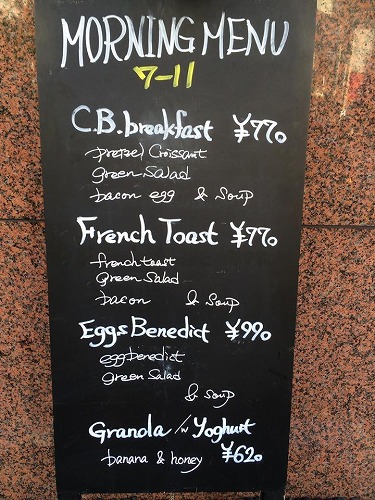 MORNING MENU
7-11
C.B.breakfast ¥770
pretzel Croissant
green Salad
bacon egg & Soup
French Toast ¥770
french toast
Green Salad
bacon & Soup
Eggs Benedict ¥990
egg benedict
green Salad
& Soup
Granola /w Yoghurt
banana & honey ¥620